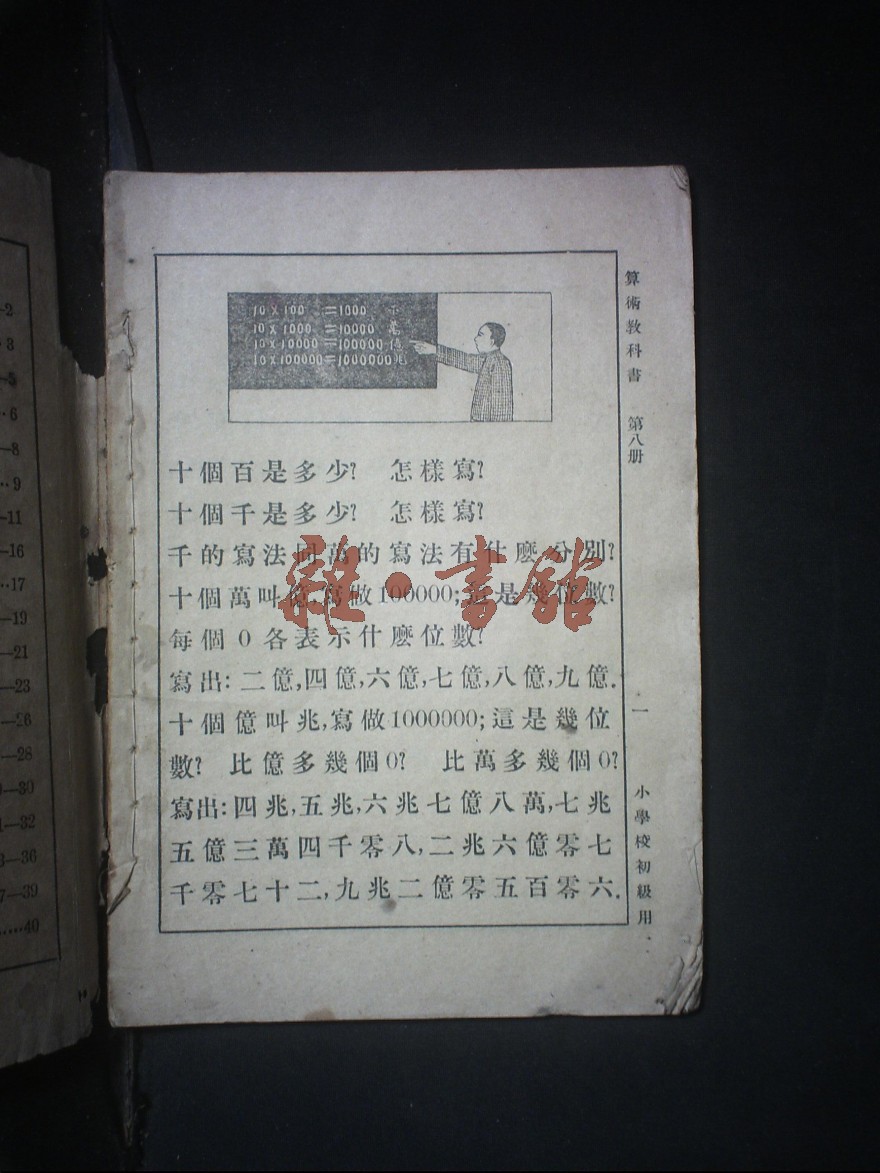 算術教科書 第八册
10 × 100 =1000 千
10 × 1000 =10000 萬
10 × 10000 =100000 億
10 × 100000=1000000 兆
十個百是多少? 怎樣寫?
十個千是多少? 怎樣寫?
千的寫法同萬的寫法有什麽分別?
十個萬叫億,寫做100000;這是幾位數?
每個0各表示什麽位數?
寫出:二億,四億,六億,七億,八億,九億.
十個億叫兆,寫做1000000;這是幾位
數? 比億多幾個0? 比萬多幾個0?
寫出:四兆,五兆,六兆七億八萬,七兆
五億三萬四千零八,二兆六億零七
千零七十二,九兆二億零五百零六.
一
小學校初級用
雜·書館
—2
—5
6
—8
9
—11
—16
17
—19
—21
—23
—26
—28
—30
—32
—36
—39
40